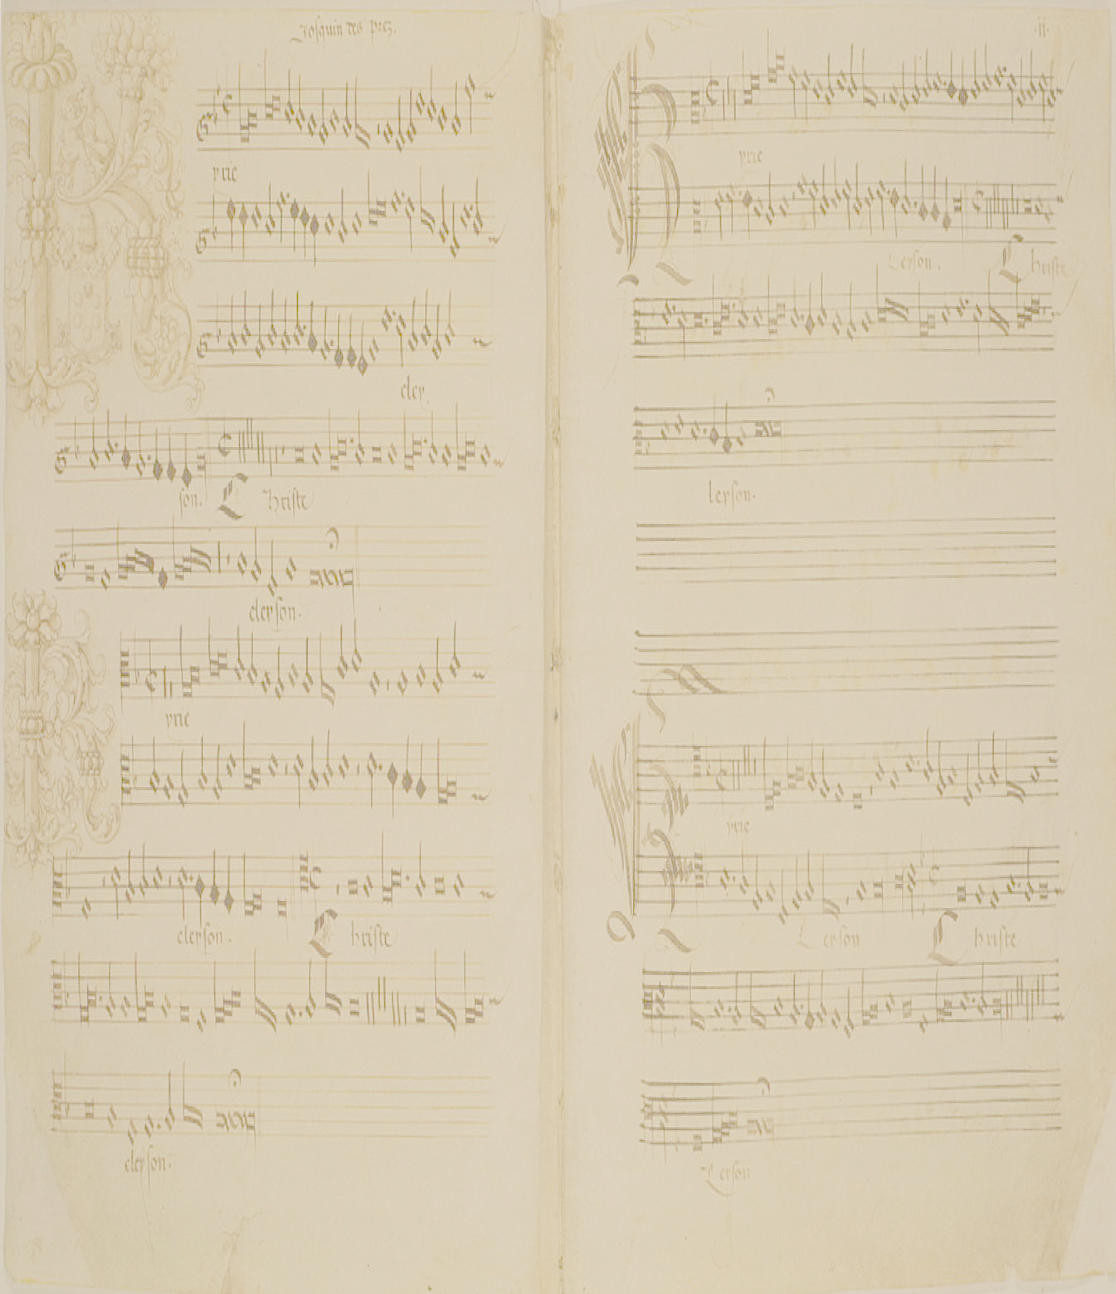 Josquin des prez.
yrie
eley
son. Christe
eleyson.
yrie
eleyson. Christe
eleyson.
ii.
yrie
Leyson. Christe
leyson.
yrie
Leyson Christe
Leyson